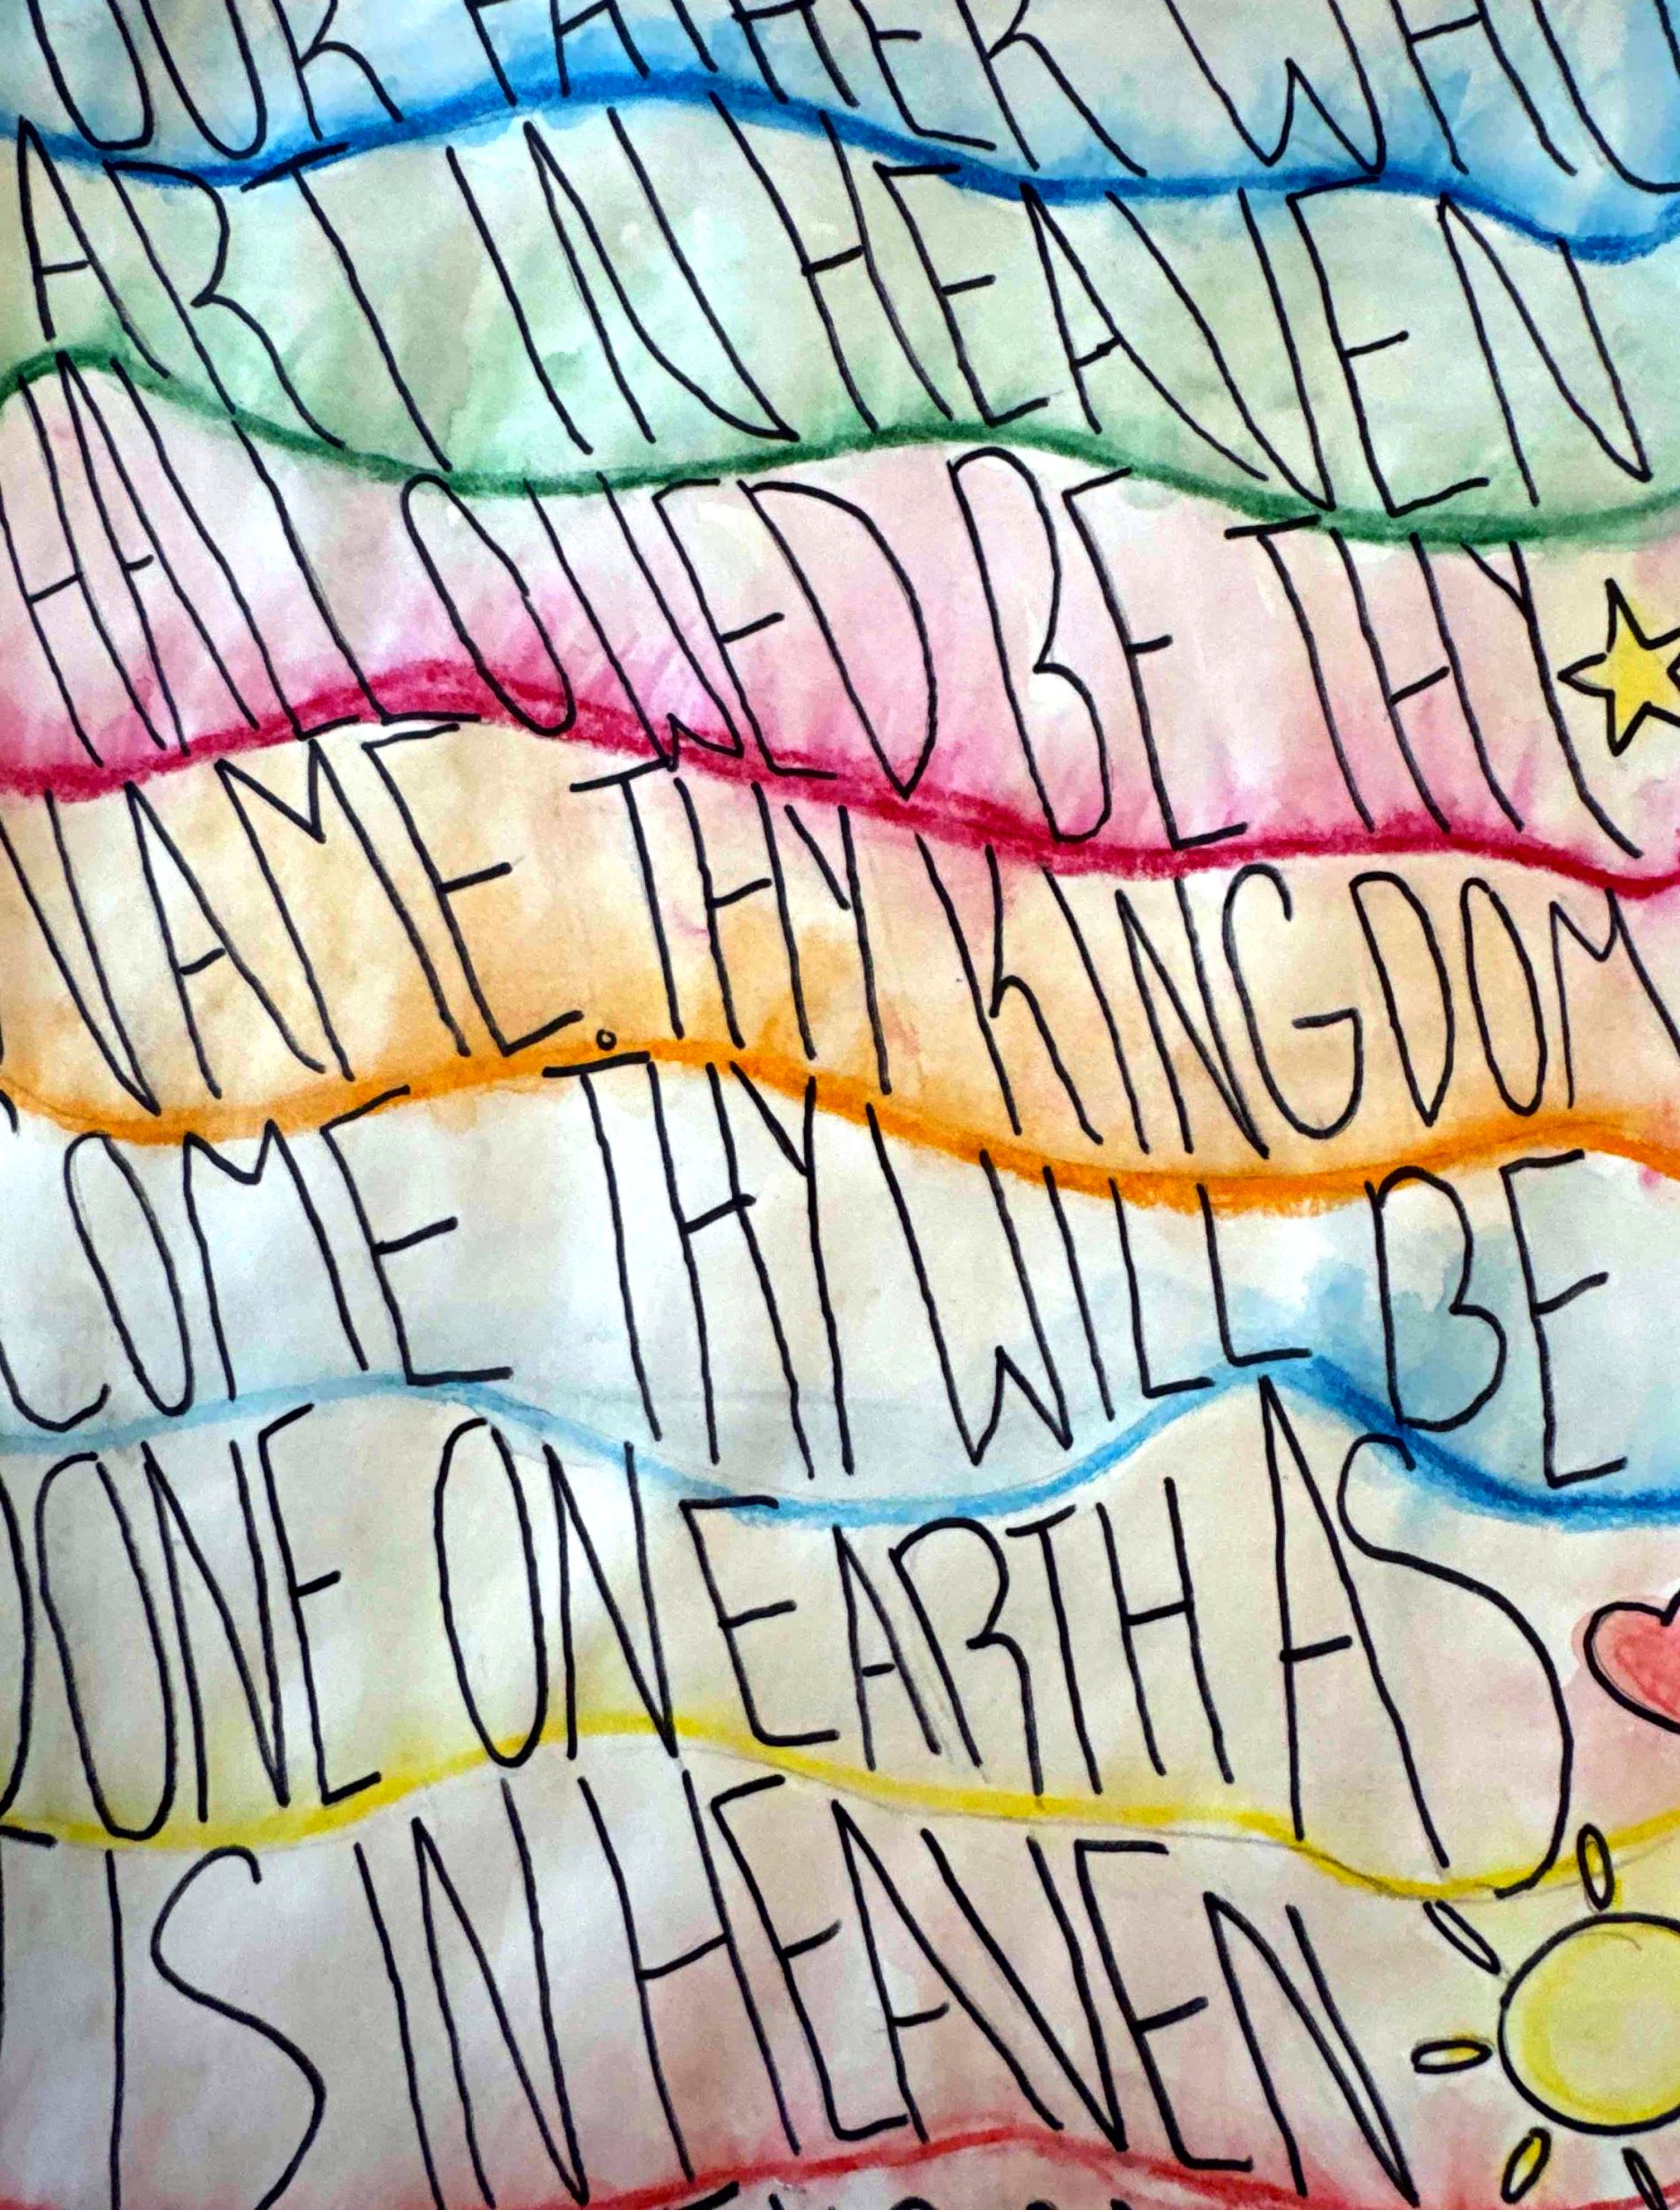 OUR FATHER WHO
ART IN HEAVEN
HALLOWED BE THY
NAME. THY KINGDOM
COME THY WILL BE
DONE ON EARTH AS
IS IN HEAVEN